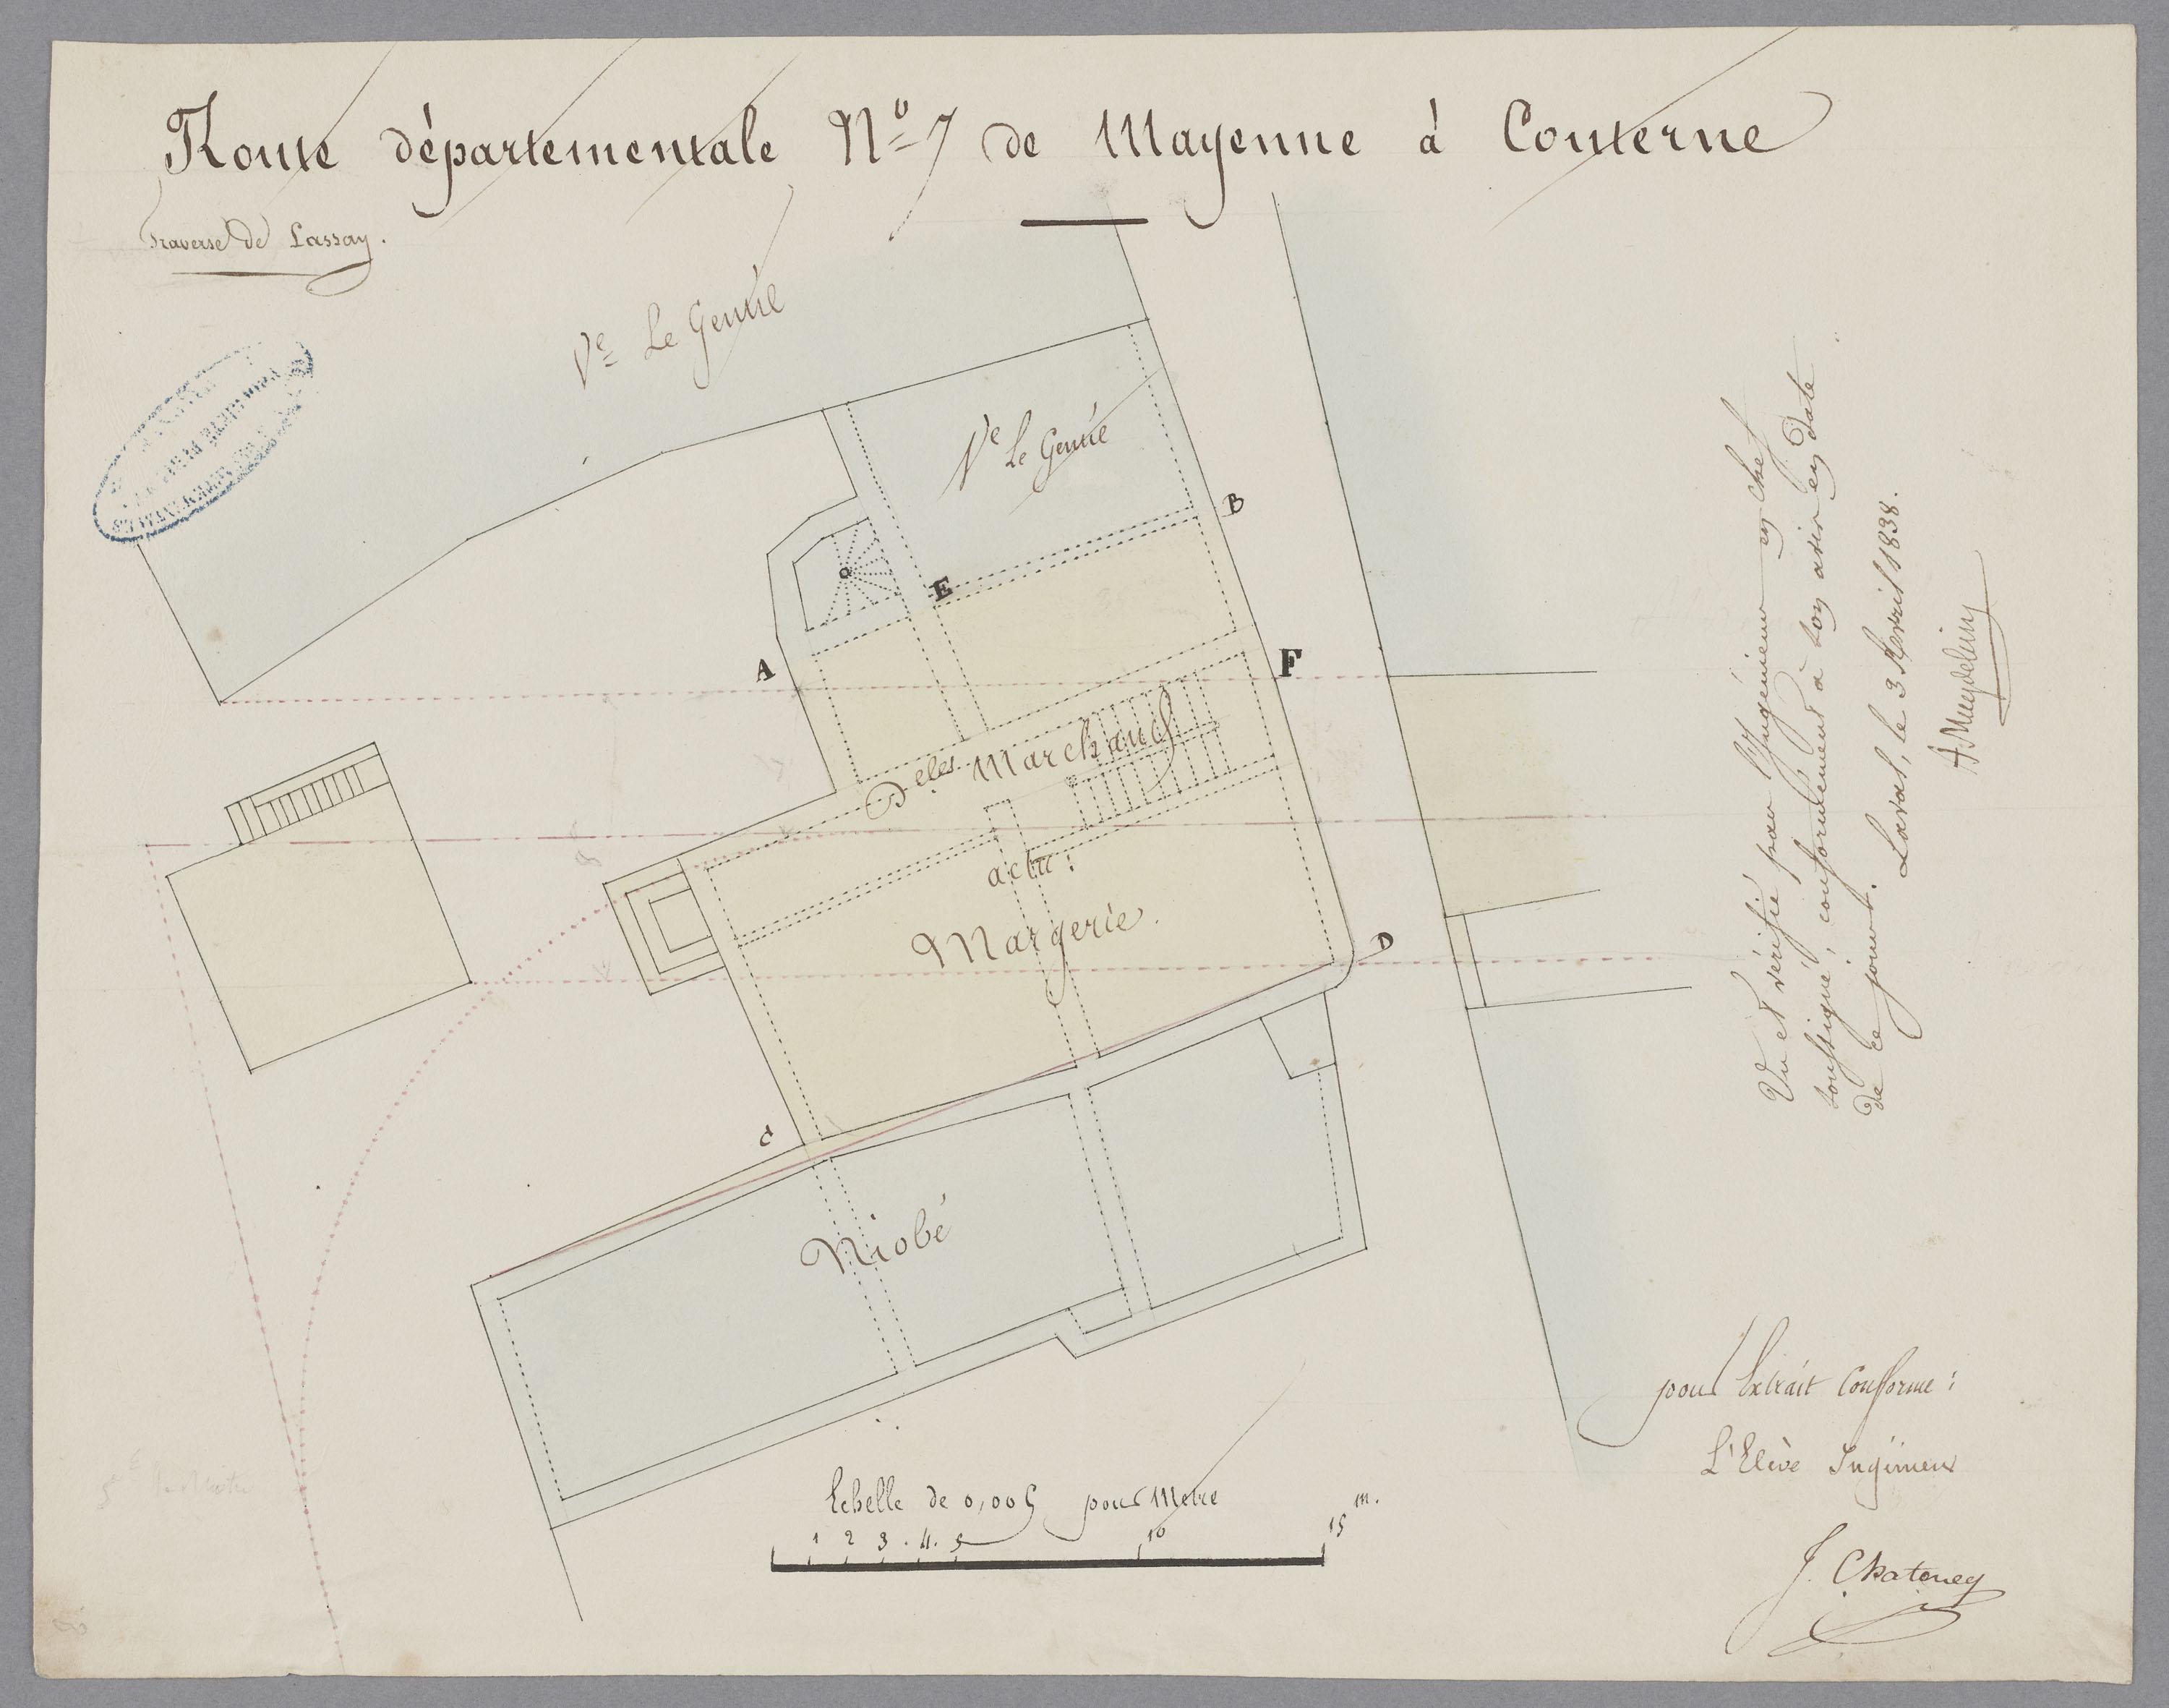 Route départementale Nº 7 de Mayenne à Couterne
Traverse de Lassay.
Ve Le Genüe
Ve Le Genüe
B
E
A
F
Delles Marchand
actu:
Margerie.
D
C
Niobé
Echelle de 0,005 pour Metre
1 2 3 . 4 . 5 10 15 m.
Vu et vérifié par l'Ingénieur en chef
soussigné, conformément à son avis en date
de ce jour.
Laval, le 3 Avril 1838.
pour Extrait Conforme :
L'Elève Ingénieur
J. Chatoney